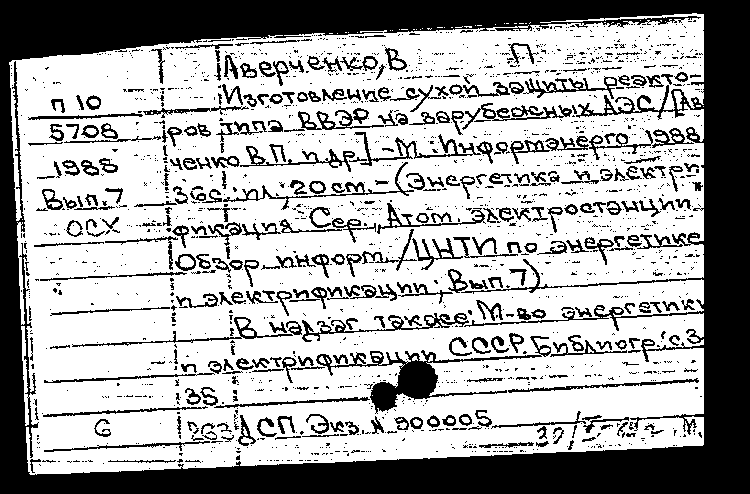 Аверченко, В П
П 10 Изготовление сухой защиты реакто-
5708 ров типа ВВЭР на зарубежных АЭС/[Аве
1988 ченко В.П. и др.] -М.: Информэнерго, 1988.
Вып.7 36с.: ил.; 20 см. - (Энергетика и электри-
ОСХ фикация. Сер., Атом. электростанции
Обзор. информ. /ЦНТИ по энергетике
и электрификации; Вып.7).
В надзаг также: М-во энергетики
и электрификации СССР. Библиогр.: с.3
35
6 263 ДСП. Экз. N 900005